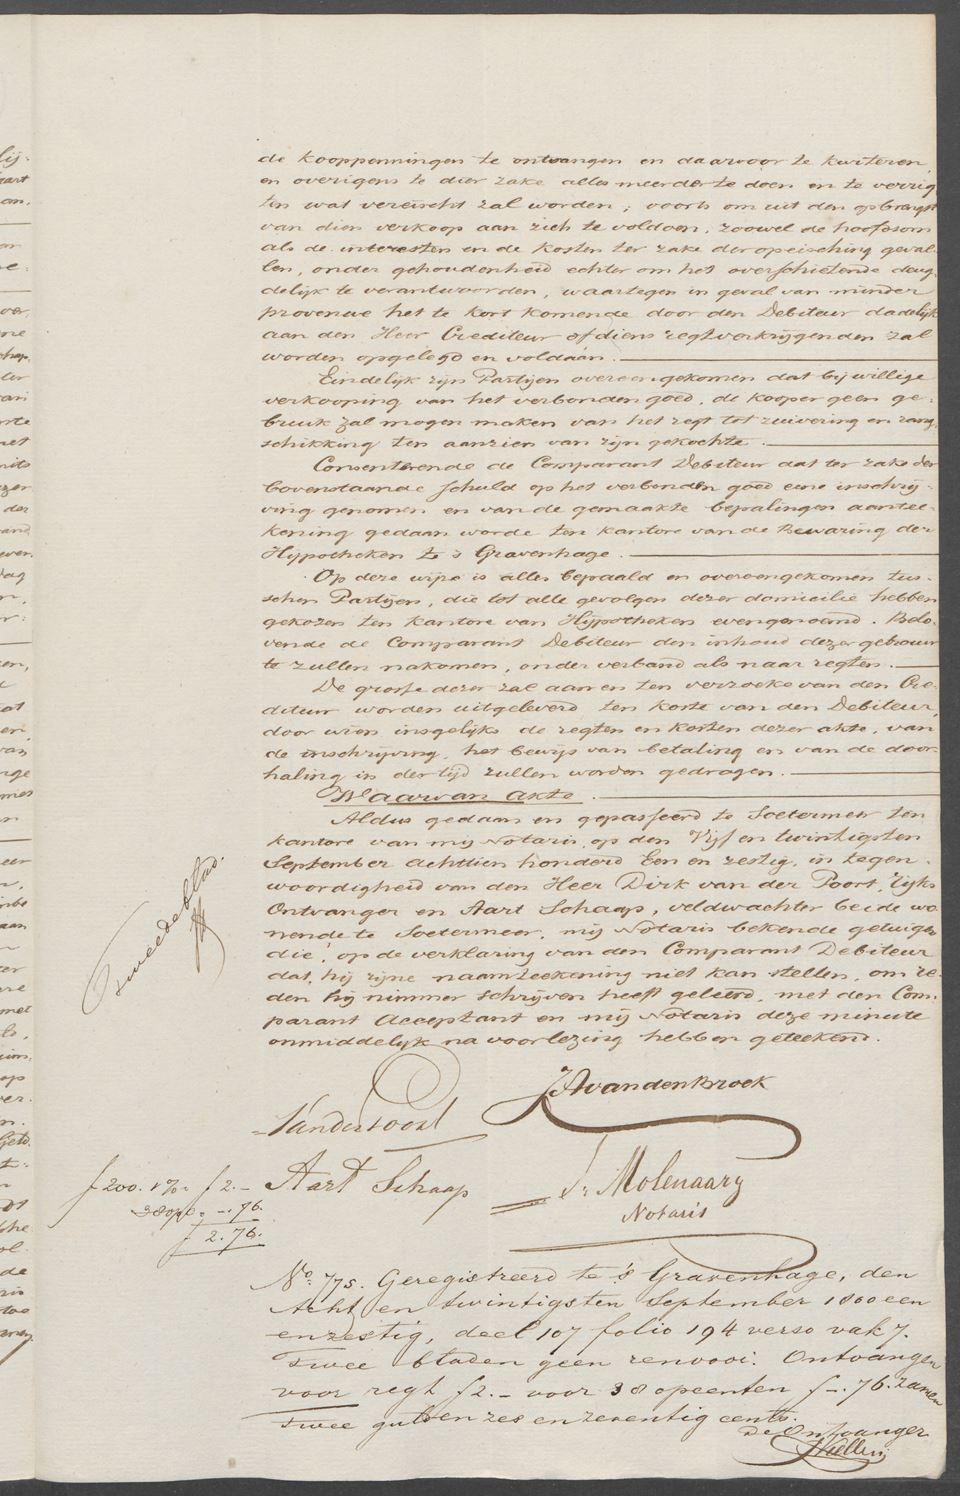 de kooppenningen te ontvangen en daarvoor te kwiteren
en overigens te dier zake alles meerder te doen en te verrig
ten wat vereischt zal worden; voorts om uit den opbrengst
van dien verkoop aan zich te voldoen, zoowel de hoofdsom
als de interesten en de kosten ter zake der opeisching geval-
len, onder gehoudenheid echter om het overschietende deug-
delijk te verantwoorden, waartegen in geval van minder
provenue het te kort komende door den Debiteur dadelijk
aan den Heer Crediteur of diens regtverkrijgenden zal
worden opgelegd en voldaan.
Eindelijk zijn Partijen overeengekomen dat bij willige
verkooping van het verbonden goed, de kooper geen ge-
bruik zal mogen maken van het regt tot zuivering en rang
schikking ten aanzien van zijn gekochte.
Consenterende de Comparant Debiteur dat ter zake der
bovenstaande schuld op het verbonden goed eene inschrij-
ving genomen en van de gemaakte bepalingen aantee-
kening gedaan worde ten kantore van de Bewaring der
Hijpotheken te 's Gravenhage.
Op deze wijze is alles bepaald en overeengekomen tus-
schen Partijen, die tot alle gevolgen dezer domicilie hebben
gekozen ten kantore van Hijpotheken evengenoemd. Belo-
vende de Comparant Debiteur den inhoud dezer getrouw
te zullen nakomen, onder verband als naar regten.
De grosse dezer zal aan en ten verzoeke van den Cre-
diteur worden uitgeleverd ten koste van den Debiteur,
door wien insgelijks de regten en kosten dezer akte, van
de inschrijving, het bewijs van betaling en van de door-
haling in der tijd zullen worden gedragen.
Waarvan Akte.
Aldus gedaan en gepasseerd te Soetermeer ten
kantore van mij Notaris, op den Vijf en twintigsten
September achttien honderd Een en zestig, in tegen-
woordigheid van den Heer Dirk van der Poort, Rijks
Ontvanger en Aart Schaap, veldwachter beide wo-
nende te Soetermeer, mij Notaris bekende getuigen
die, op de verklaring van den Comparant Debiteur
dat hij zijne naamteekening niet kan stellen, om re-
den hij nimmer schrijven heeft geleerd, met den Com-
parant Acceptant en mij Notaris deze minute
onmiddelijk na voorlezing hebben geteekend.
Tweede blad.
JA van den Broek
VanderPoort
Aart Schaap
Molenaar
Notaris
f 200. 1% f 2.-
38 opc. -.76.
f 2.76.
No. 775. Geregistreerd te 's Gravenhage, den
Acht en twintigsten September 1800 een
en zestig, deel 107 folio 194 verso vak 7.
twee bladen geen renvooi. Ontvangen
voor regt f 2.- voor 38 opcenten f -.76. zamen
twee gulden zes en zeventig cents.
De Ontvanger